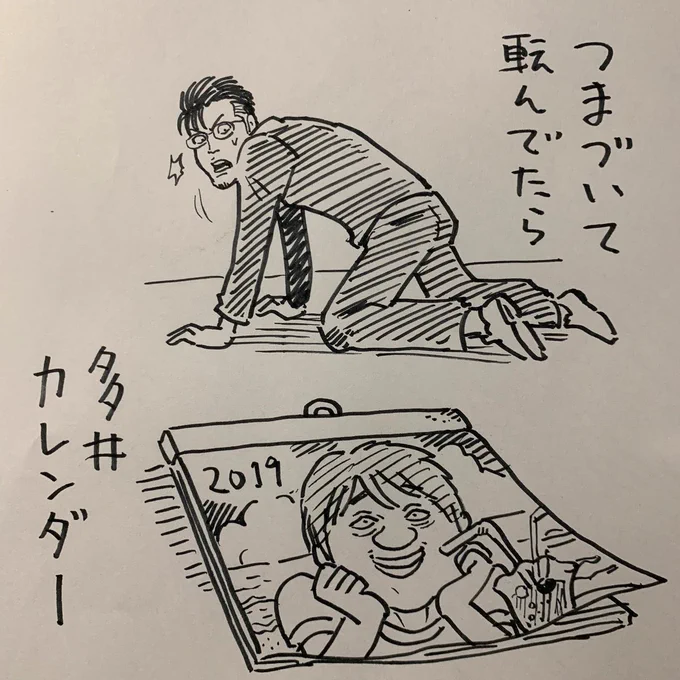 つまづいて
転んでたら
多井
カレンダー
2019